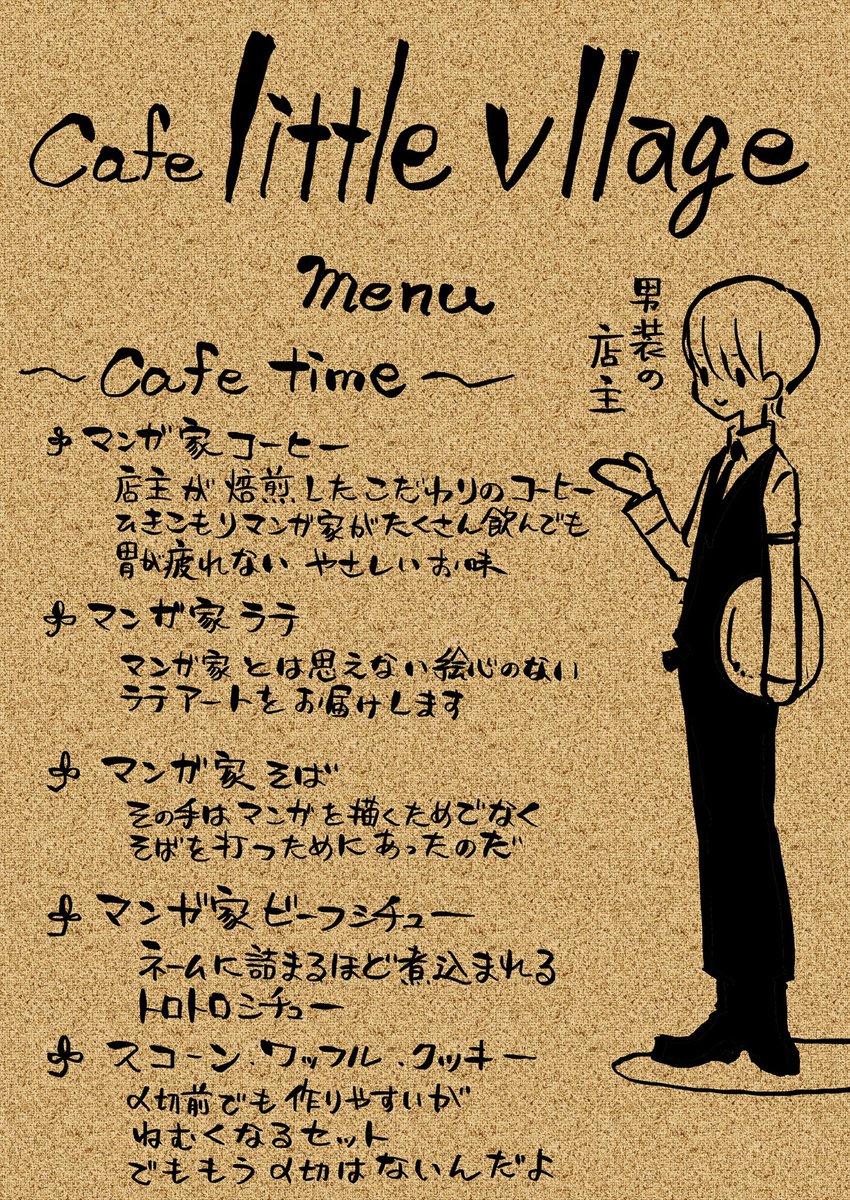 Cafe little vllage
menu
男装の
店主
～Cafe time～
マンガ家コーヒー
店主が焙煎したこだわりのコーヒー
ひきこもりマンガ家がたくさん飲んでも
胃が疲れない やさしいお味
マンガ家ラテ
マンガ家とは思えない絵心のない
ラテアートをお届けします
マンガ家そば
その手はマンガを描くためでなく
そばを打つためにあったのだ
マンガ家ビーフシチュー
ネームに詰まるほど煮込まれる
トロトロシチュー
スコーン、ワッフル、クッキー
〆切前でも作りやすいが
ねむくなるセット
でももう〆切はないんだよ